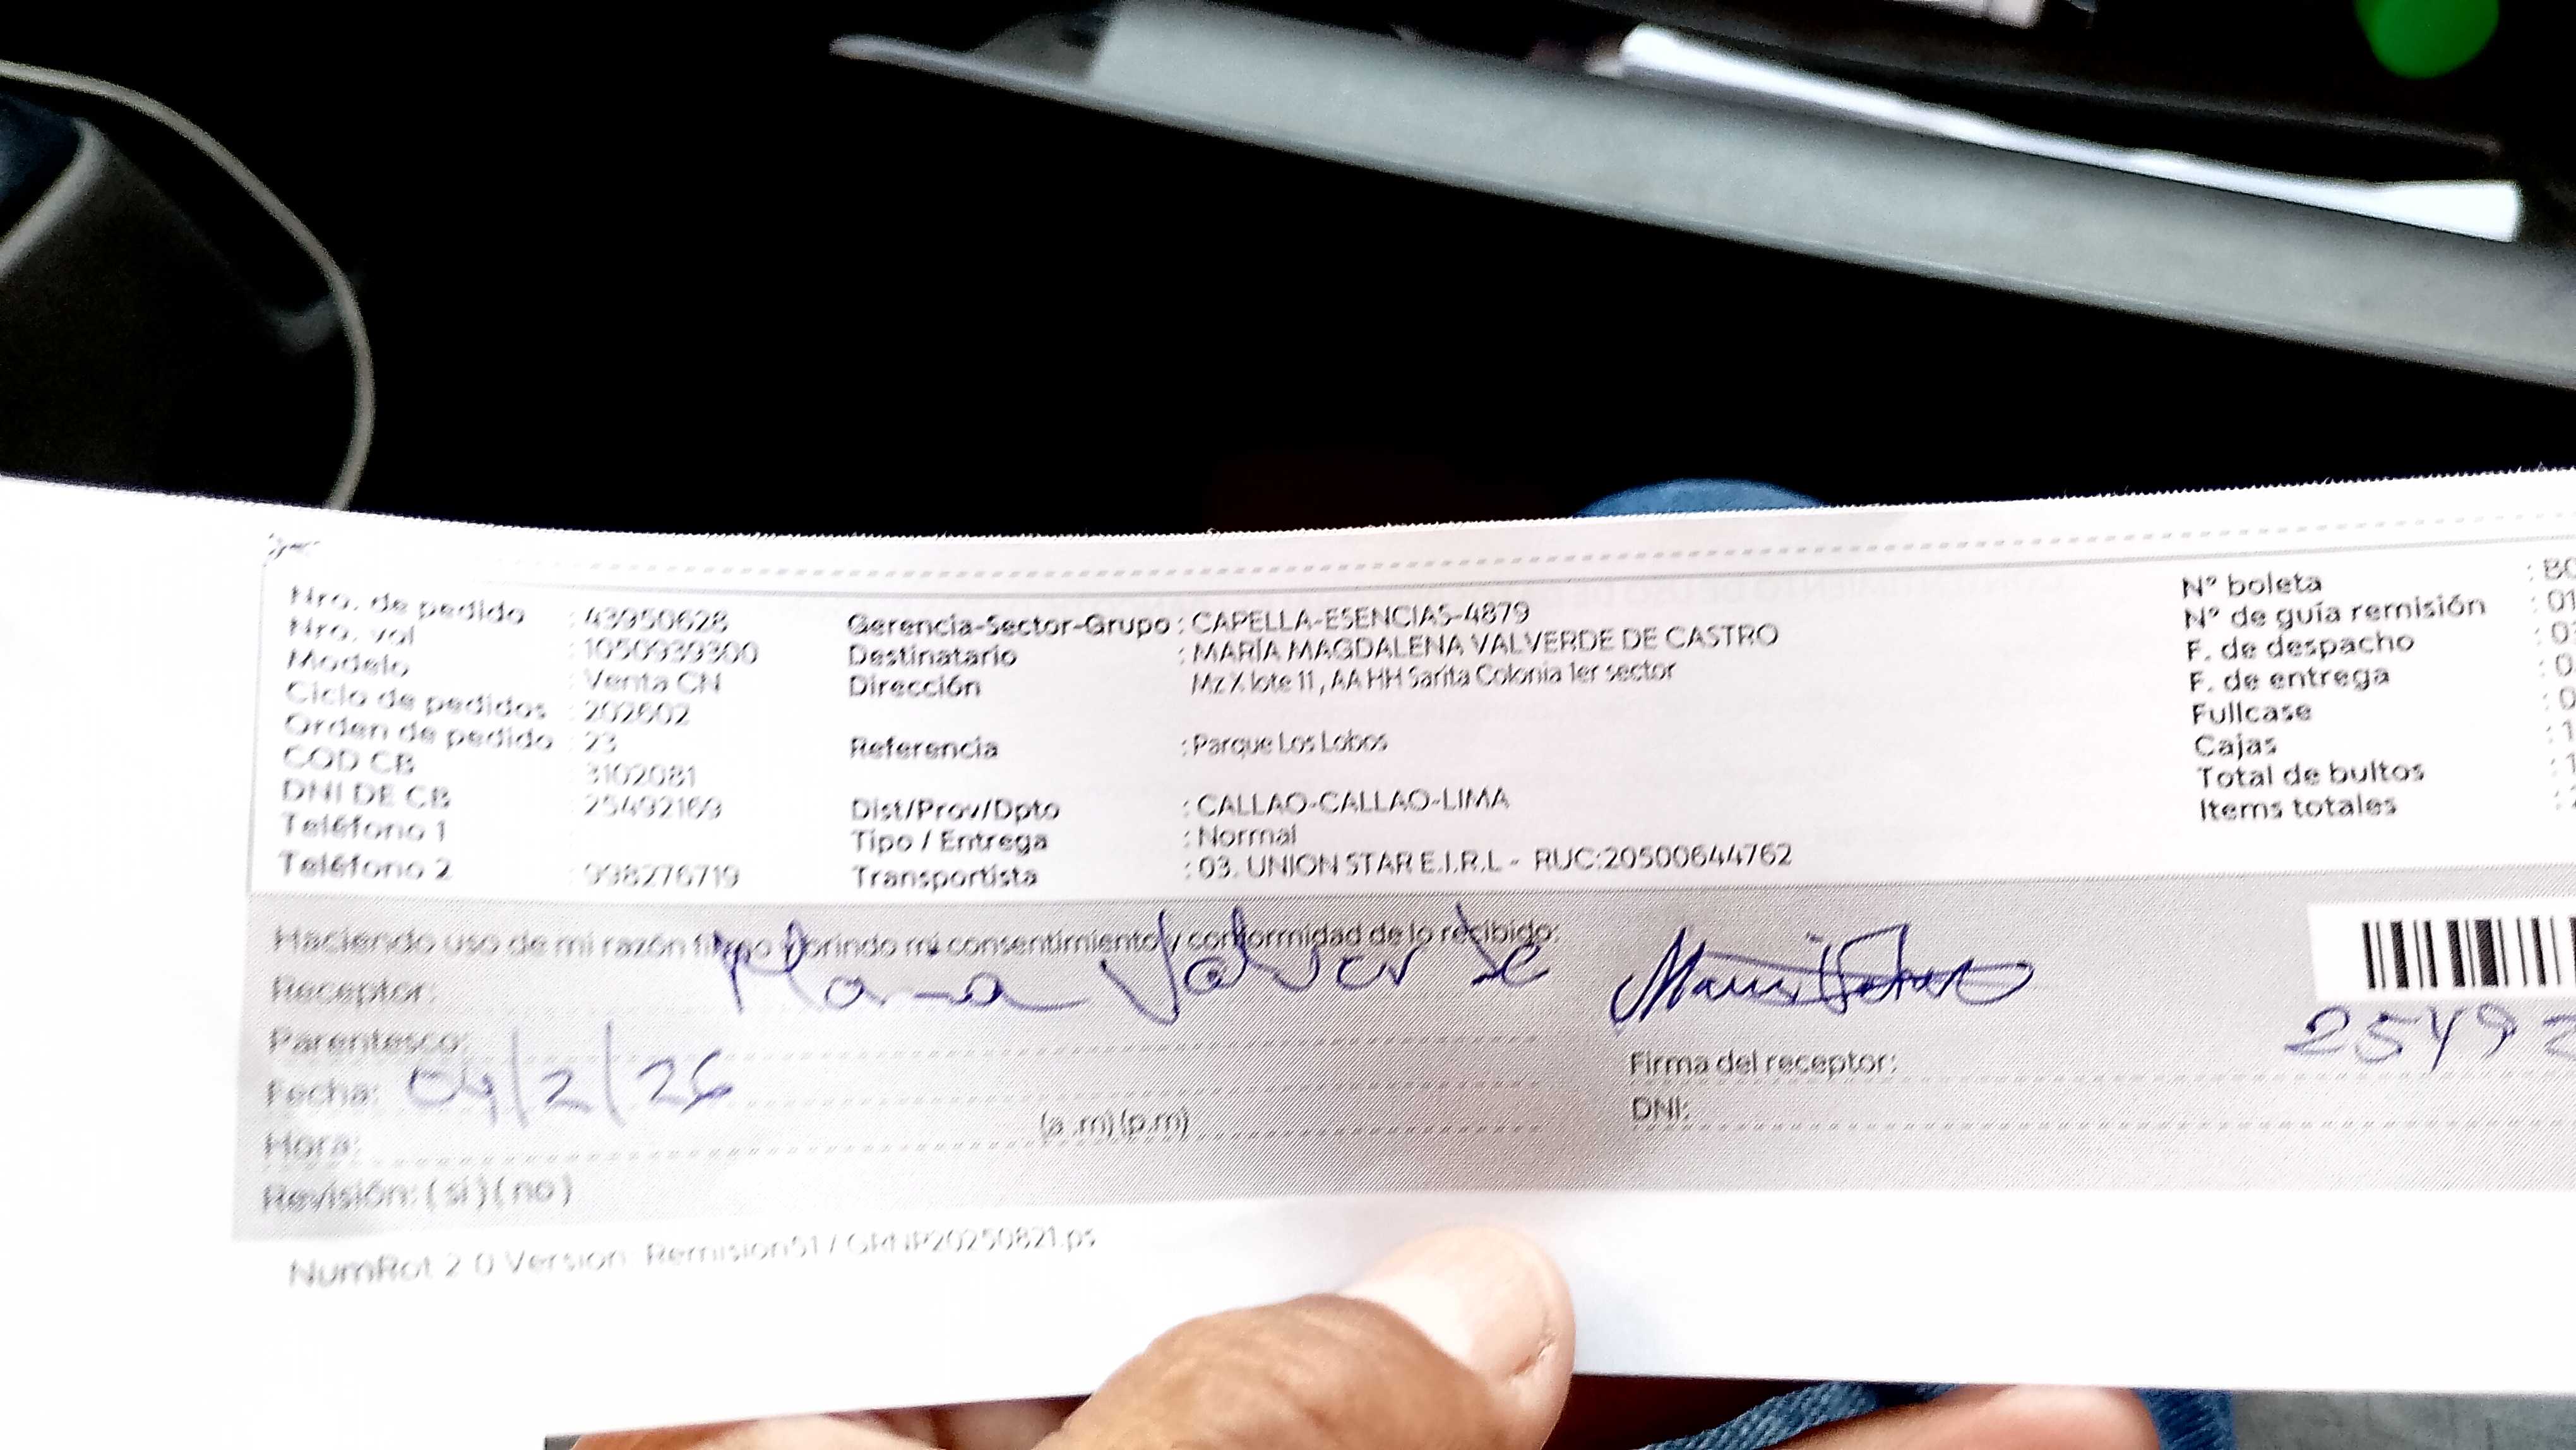 Nro. de pedido : 43950628
Nro. vol : 1050939300
Modelo : Venta CN
Ciclo de pedidos : 202602
Orden de pedido : 23
COD CB : 3102081
DNI DE CB : 25492169
Teléfono 1
Teléfono 2 : 998276719
Gerencia-Sector-Grupo : CAPELLA-ESENCIAS-4879
Destinatario : MARÍA MAGDALENA VALVERDE DE CASTRO
Dirección Mz X lote 11 , AA HH Sarita Colonia 1er sector
Referencia : Parque Los Lobos
Dist/Prov/Dpto : CALLAO-CALLAO-LIMA
Tipo / Entrega : Normal
Transportista : 03. UNION STAR E.I.R.L - RUC:20500644762
N° boleta : B0
N° de guía remisión : 01
F. de despacho : 0
F. de entrega : 0
Fullcase : 0
Cajas : 1
Total de bultos : 1
Items totales :
Haciendo uso de mi razón firmo y brindo mi consentimiento y conformidad de lo recibido:
Receptor: Maria Valverde
Parentesco:
Fecha: 04/2/26
Hora: (a .m) (p.m)
Revisión: ( si ) ( no )
Firma del receptor:
DNI:
25492
NumRot 2.0 Version: Remision51 / GRNP20250821.ps